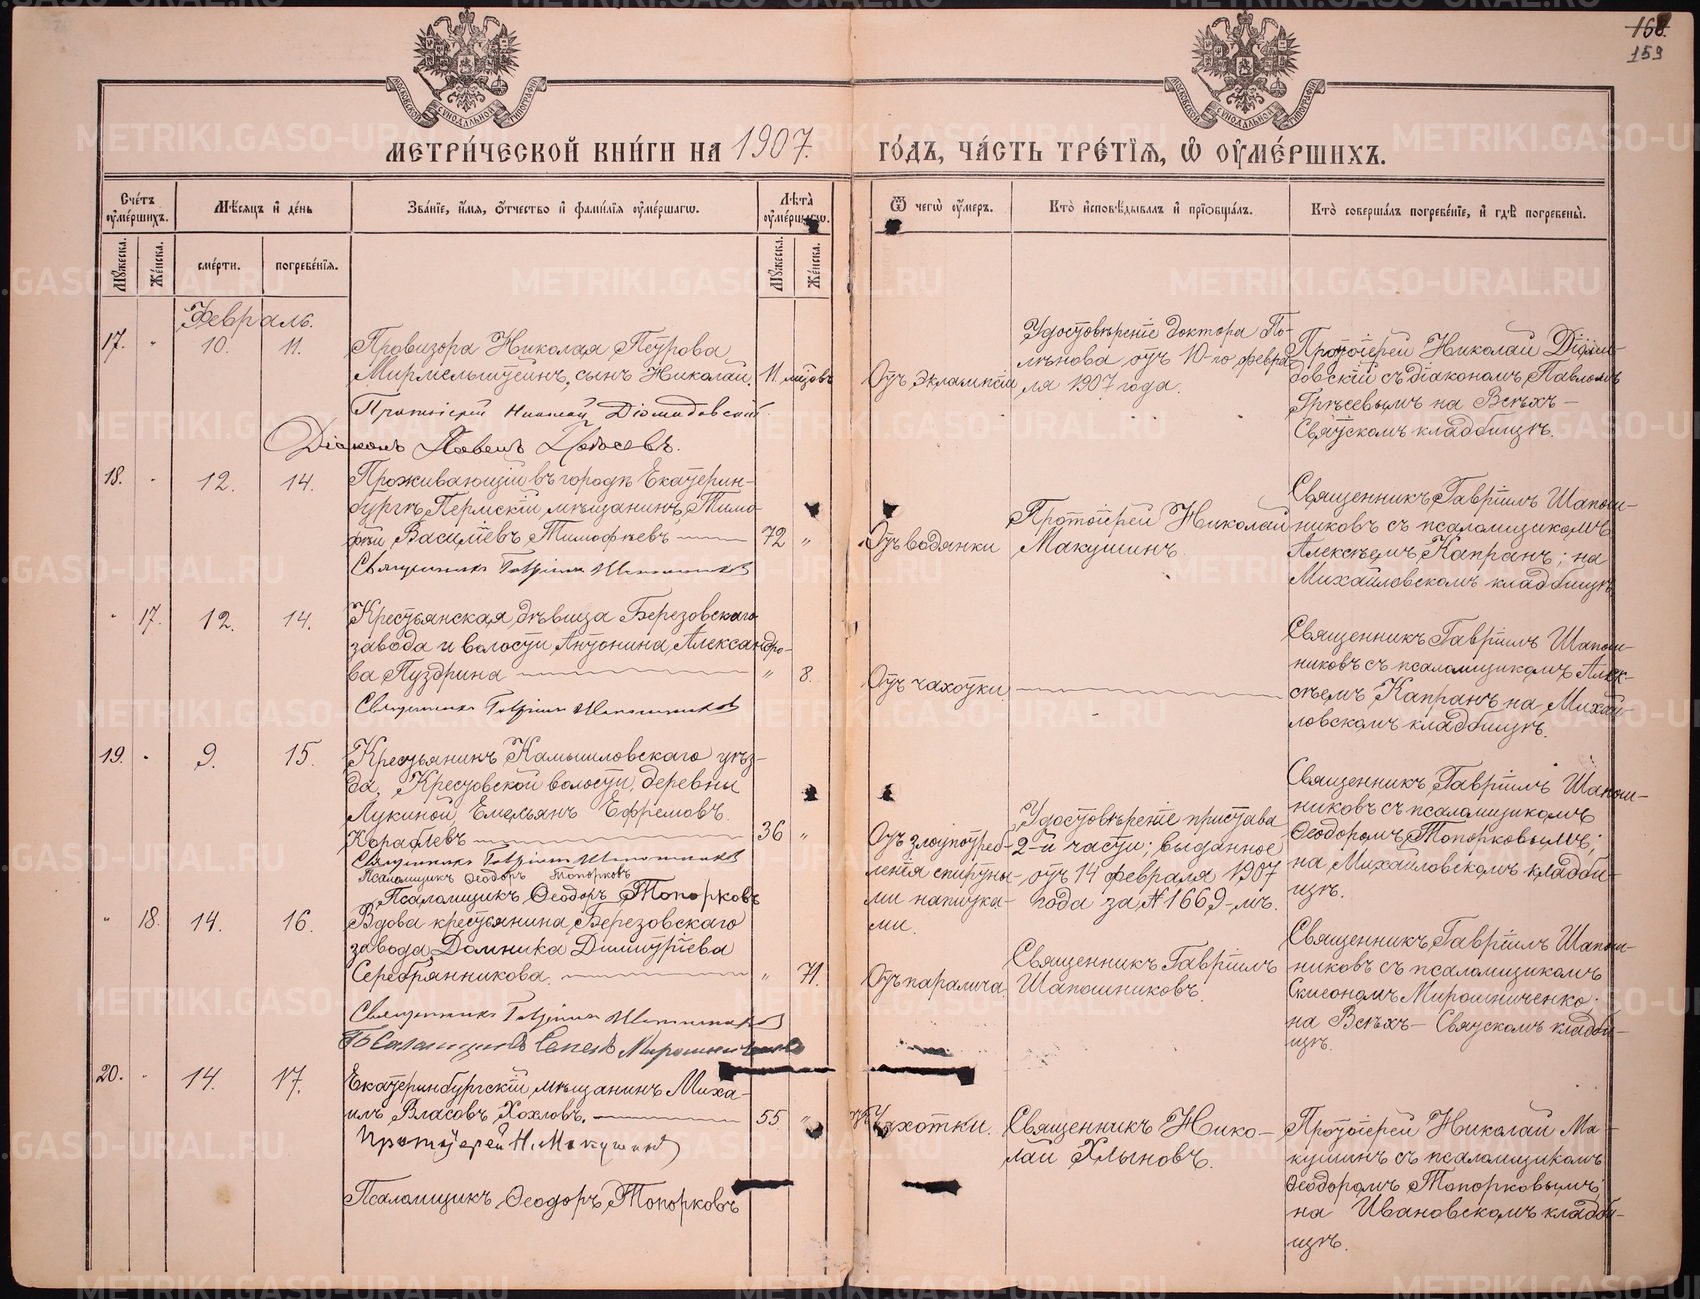 168.
153
МЕТРИ́ЧЕСКОЙ КНИ́ГИ НА 1907. ГО́ДЪ, ЧА́СТЬ ТРЕ́ТІЯ, Ѡ҆ ОУ҆МЕ́РШИХЪ.
Сче́тъ оу҆ме́ршихъ.
Мѣ́сяцъ и҆ де́нь
Зва́нїе, и҆́мя, ѻ҆́тчество и҆ фами́лїя оу҆ме́ршагѡ.
Лѣ́та оу҆ме́ршагѡ.
Ѿ чегѡ̀ оу҆́меръ.
Кто̀ и҆сповѣ́дывалъ и҆ прїѡбща́лъ.
Кто̀ соверша́лъ погребе́нїе, и҆ гдѣ̀ погребены̀.
Мꙋ́жеска. Же́нска. сме́рти. погребе́нїя. Мꙋ́жеска. Же́нска.
Февраль.
17. " 10. 11.
Провизора Николая Петрова
Мирмельштейнъ, сынъ Николай. 11 мѣсяцъ
Протоіерей Николай Діомидовскій
Діаконъ Павелъ Гръсевъ.
Отъ эклампсіи
Удостовѣреніе доктора По-
лѣнова отъ 10-го февра-
ля 1907 года.
Протоіерей Николай Діоми-
довскій съ діакономъ Павломъ
на Всѣхъ-
Святскомъ кладбищѣ.
18. " 12. 14.
Проживающій въ городѣ Екатерин-
бургѣ, Пермскій мѣщанинъ, Тимо-
фей Васильевъ Тимофѣевъ 72 "
Священникъ Гавріилъ Шапошниковъ
Отъ водянки
Протоіерей Николай
Макушинъ
Священникъ Гавріилъ Шапош-
никовъ съ псаломщикомъ
Алексѣемъ Капранъ; на
Михайловскомъ кладбищѣ.
" 17. 12. 14.
Крестьянская дѣвица Березовскаго
завода и волости Антонина Александро-
ва Пуздрина " 8.
Священникъ Гавріилъ Шапошниковъ
Отъ чахотки
Священникъ Гавріилъ Шапош-
никовъ съ псаломщикомъ Алек-
сѣемъ Капранъ на Михай-
ловскомъ кладбищѣ.
19. " 9. 15.
Крестьянинъ Камышловскаго уѣз-
да, Крестовской волости, деревни
Лукиной, Емельянъ Ефремовъ
Кораблевъ 36 "
Священникъ Гавріилъ Шапошниковъ
Псаломщикъ Ѳеодоръ Топорковъ
Псаломщикъ Ѳеодоръ Топорковъ
Отъ злоупотреб-
ленія спиртны-
ми напитка-
ми.
Удостовѣреніе пристава
2-й части; выданное
отъ 14 февраля 1907
года за № 1669-мъ.
Священникъ Гавріилъ Шапош-
никовъ съ псаломщикомъ
Ѳеодоромъ Топорковымъ;
на Михайловскомъ кладби-
щѣ.
" 18. 14. 16.
Вдова крестьянина Березовскаго
завода Домника Димитріева
Серебрянникова. " 71.
Священникъ Гавріилъ Шапошниковъ
Псаломщикъ Мирошниченко
Отъ паралича.
Священникъ Гавріилъ
Шапошниковъ.
Священникъ Гавріилъ Шапош-
никовъ съ псаломщикомъ
Мирошниченко.
на Всѣхъ-Святскомъ кладби-
щѣ.
20. " 14. 17.
Екатеринбургскій мѣщанинъ Миха-
илъ Власовъ Хохловъ. 55 "
Протоіерей Н. Макушинъ
Псаломщикъ Ѳеодоръ Топорковъ
Чахотки.
Священникъ Нико-
лай Хлыновъ.
Протоіерей Николай Ма-
кушинъ съ псаломщикомъ
Ѳеодоромъ Топорковымъ;
на Ивановскомъ кладби-
щѣ.
METRIKI.GASO-URAL.RU